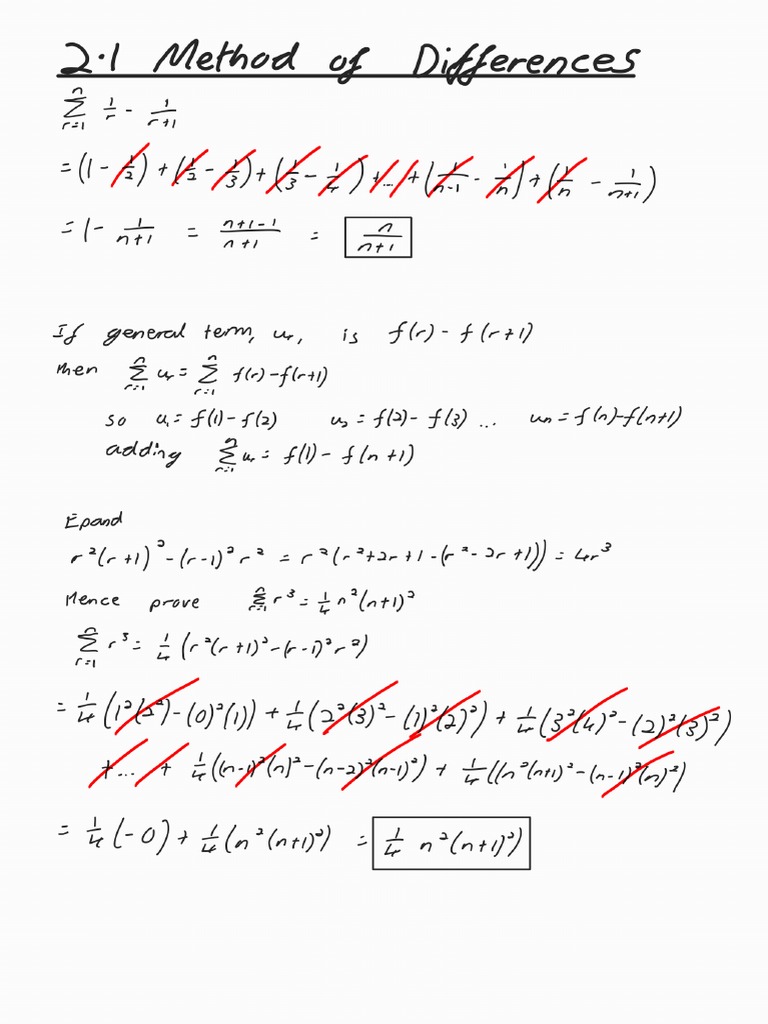 2.1 Method of Differences
n∑r=1 1/r - 1/(r+1)
= (1 - 1/2) + (1/2 - 1/3) + (1/3 - 1/4) + ... + (1/(n-1) - 1/n) + (1/n - 1/(n+1))
= 1 - 1/(n+1) = (n+1-1)/(n+1) = n/(n+1)
If general term, uᵣ, is f(r) - f(r+1)
then n∑r=1 uᵣ = n∑r=1 f(r) - f(r+1)
so u₁ = f(1) - f(2) u₂ = f(2) - f(3) ... uₙ = f(n) - f(n+1)
adding n∑r=1 uᵣ = f(1) - f(n+1)
Epand
r²(r+1)² - (r-1)² r² = r²(r²+2r+1-(r²-2r+1)) = 4r³
Hence prove n∑r=1 r³ = 1/4 n²(n+1)²
n∑r=1 r³ = 1/4 (r²(r+1)² - (r-1)² r²)
= 1/4 (1²(2²) - (0)²(1)) + 1/4 (2²(3)² - (1)²(2)²) + 1/4 (3²(4)² - (2)²(3)²)
+ ... + 1/4 ((n-1)²(n)² - (n-2)²(n-1)²) + 1/4 ((n²(n+1)² - (n-1)²(n)²)
= 1/4 (-0) + 1/4 (n²(n+1)²) = 1/4 n²(n+1)²)